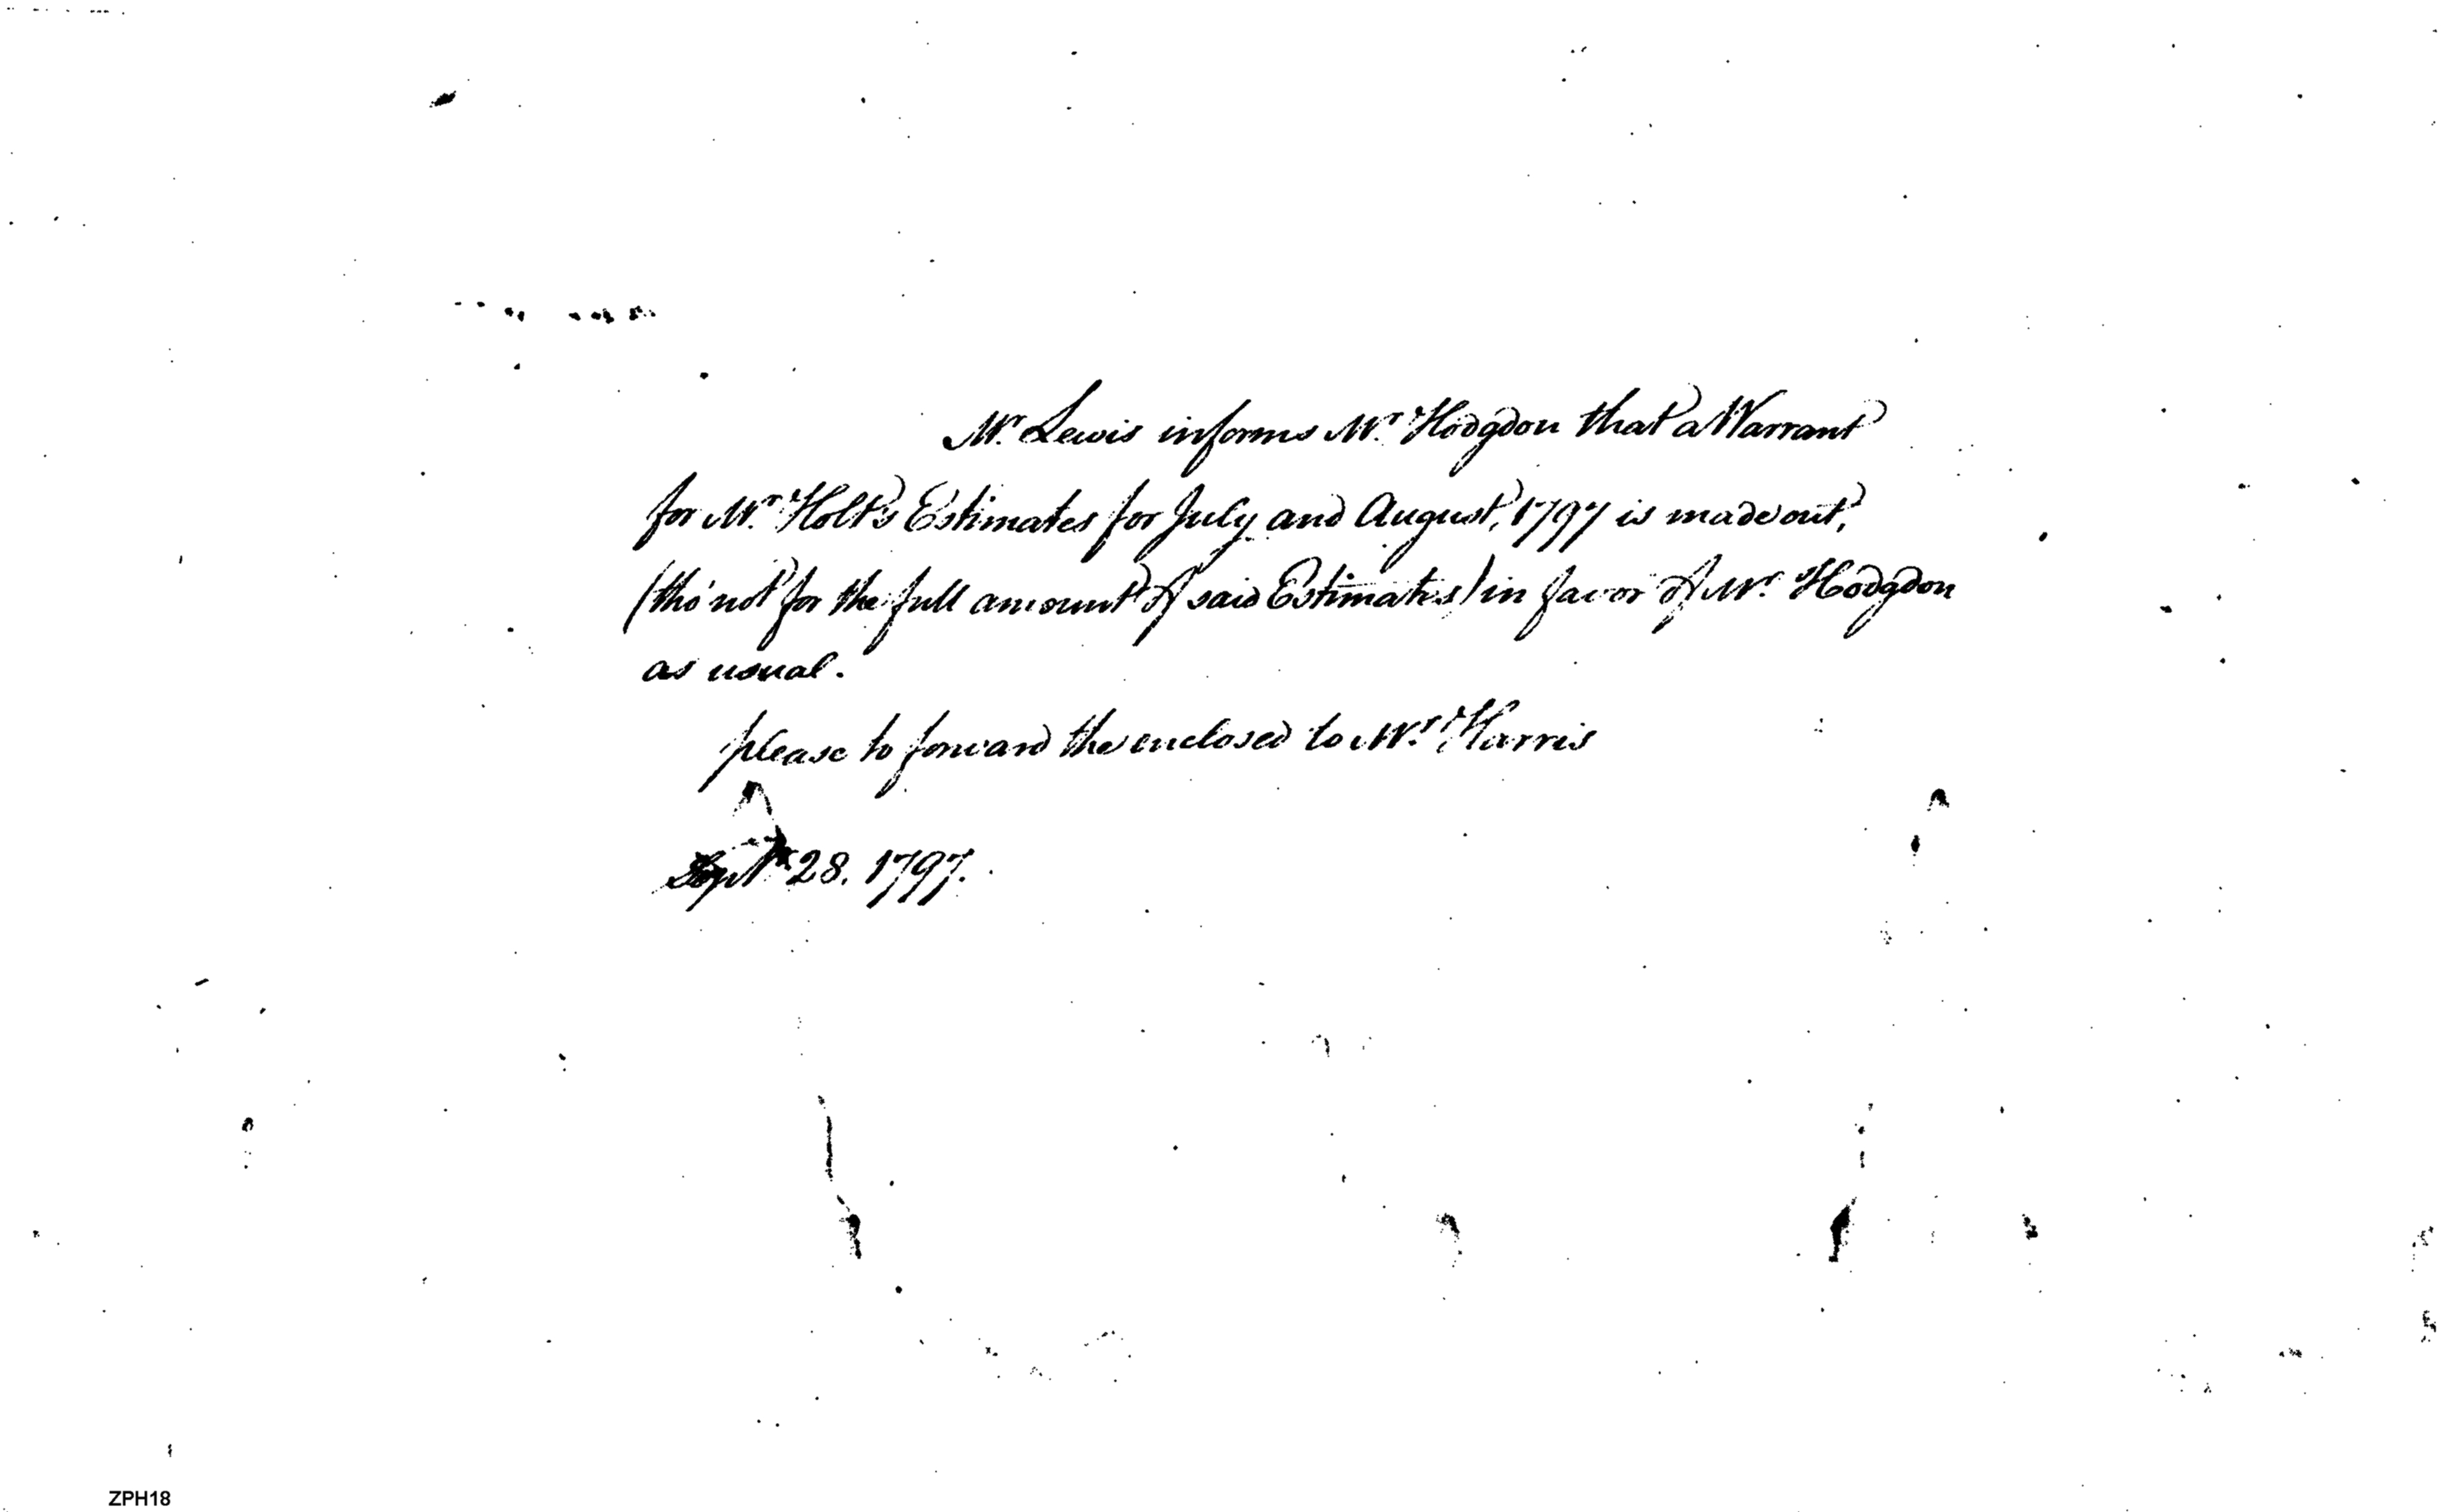 Mr. Lewis informs Mr. Hodgdon that a Warrant
for Mr. Holt's Estimates for July and August, 1797 is made out,
(tho' not for the full amount of said Estimates) in favor of Mr. Hodgdon
as usual.
please to forward the enclosed to Mr. Harris
Sept 28. 1797.
ZPH18